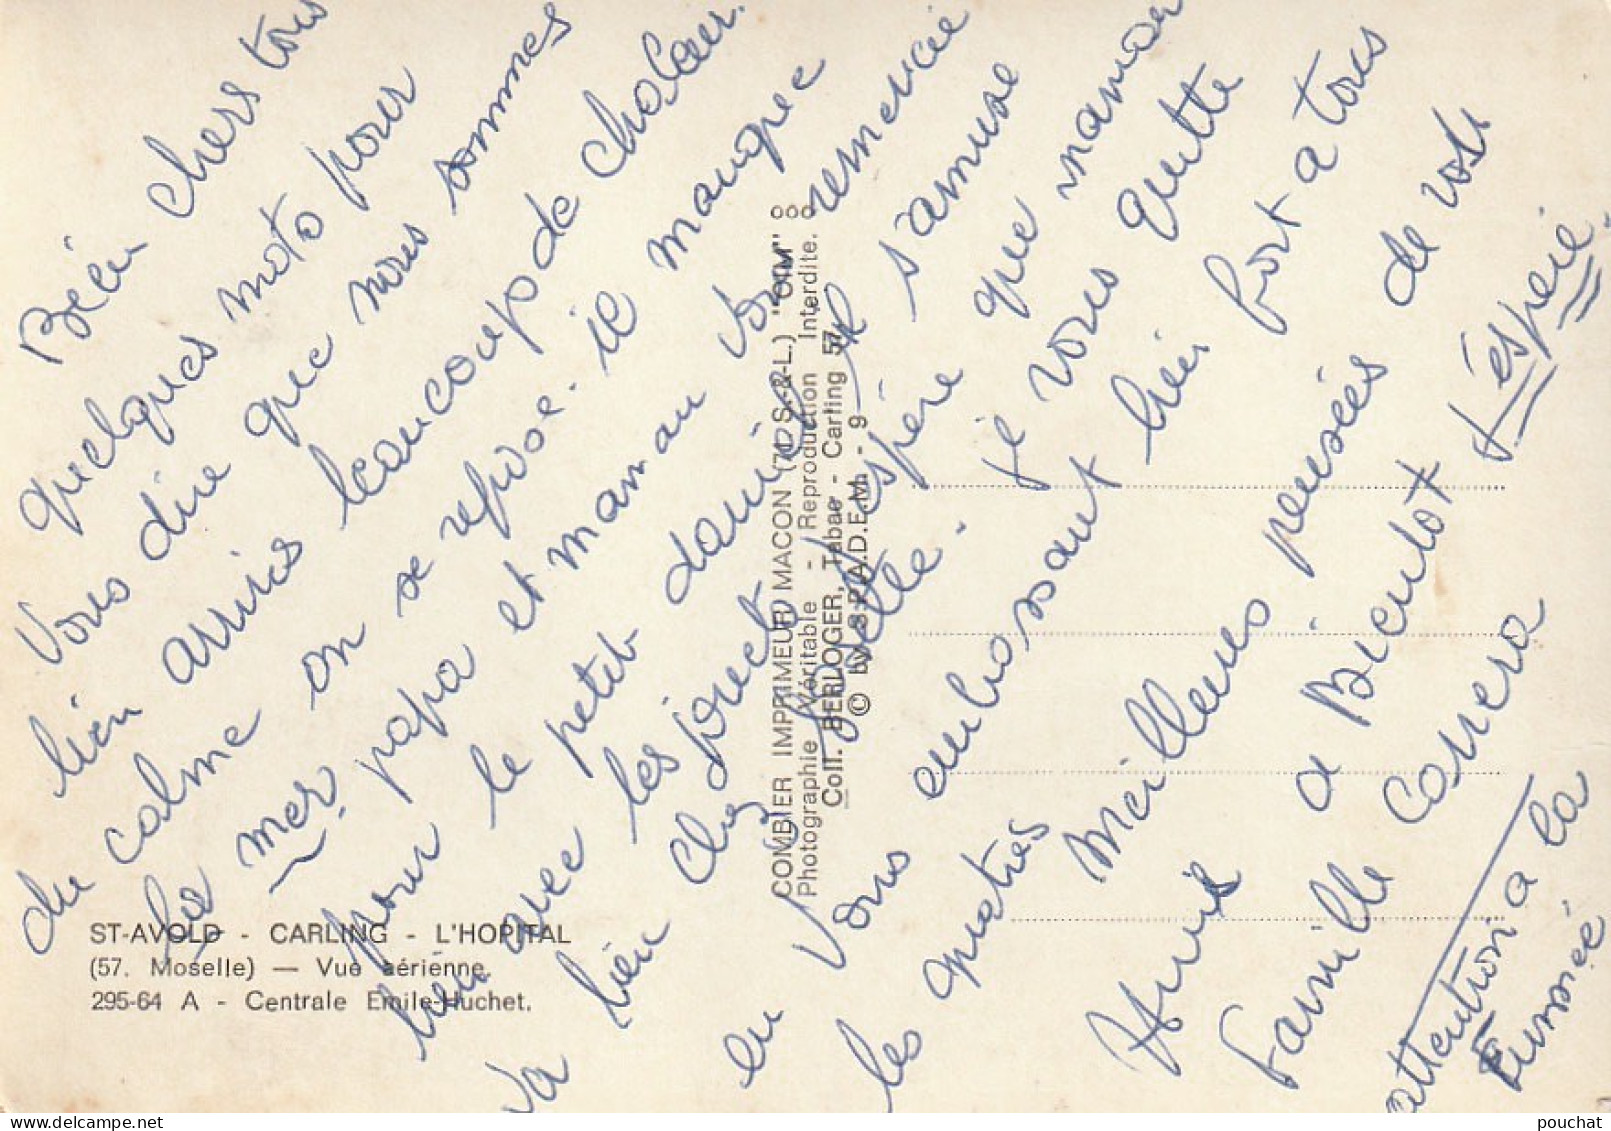 Bien chers tous
quelques moto pour
Vous dire que nous sommes
bien arrivés beaucoup de chaleur.
du calme on se repose. il manque
la mer. papa et maman vous remercie
pour le petit daniel s'amuse
bien avec les jouet j'espère que maman
va bien chez Josette. je vous quitte
en Vous embrassant bien fort a tous
les quatres
Meilleures pensées de vos
Amis a Bientot + éspeie.
Famille Correra
attention a la
Fumée
ST-AVOLD - CARLING - L'HOPITAL
(57. Moselle) — Vue aérienne.
295-64 A - Centrale Emile-Huchet.
COMBIER IMPRIMEUR MACON (71 S.-&-L.) "CIM"
Photographie Véritable - Reproduction Interdite.
Coll. BERLOGER, Tabac - Carling 57
© by S.P.A.D.E.M. - 9
pouchat